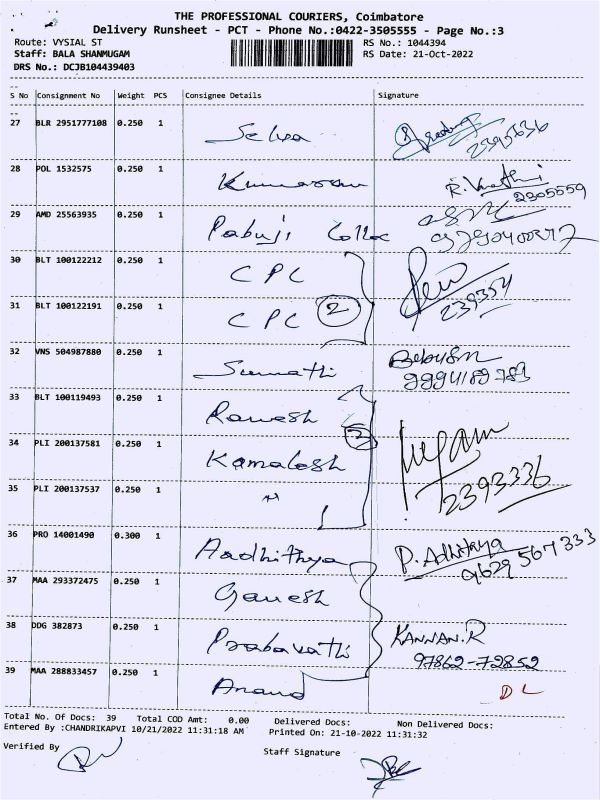 THE PROFESSIONAL COURIERS, Coimbatore
Delivery Runsheet - PCT - Phone No.:0422-3505555 - Page No.:3
Route: VYSIAL ST RS No.: 1044394
Staff: BALA SHANMUGAM RS Date: 21-Oct-2022
DRS No.: DCJB104439403
S No Consignment No Weight PCS Consignee Details Signature
27 BLR 2951777108 0.250 1 Selva
28 POL 1532575 0.250 1 Kumaran R. Vasthi 2305559
29 AMD 25563935 0.250 1 Pabuji Collec
30 BLT 100122212 0.250 1 CPC
31 BLT 100122191 0.250 1 CPC 2 239354
32 VNS 504987880 0.250 1 Sumathi
9994189783
33 BLT 100119493 0.250 1 Ramesh
34 PLI 200137581 0.250 1 Kamalesh
35 PLI 200137537 0.250 1 " 2393336
36 PRO 14001490 0.300 1 Aadhithya P. Adhitaya
9629 567 333
37 MAA 293372475 0.250 1 Ganesh
38 DDG 382873 0.250 1 Prabavathi KANNAN.R
97862-72852
39 MAA 288833457 0.250 1 Anand DL
Total No. Of Docs: 39 Total COD Amt: 0.00 Delivered Docs: Non Delivered Docs:
Entered By :CHANDRIKAPVI 10/21/2022 11:31:18 AM Printed On: 21-10-2022 11:31:32
Verified By Staff Signature